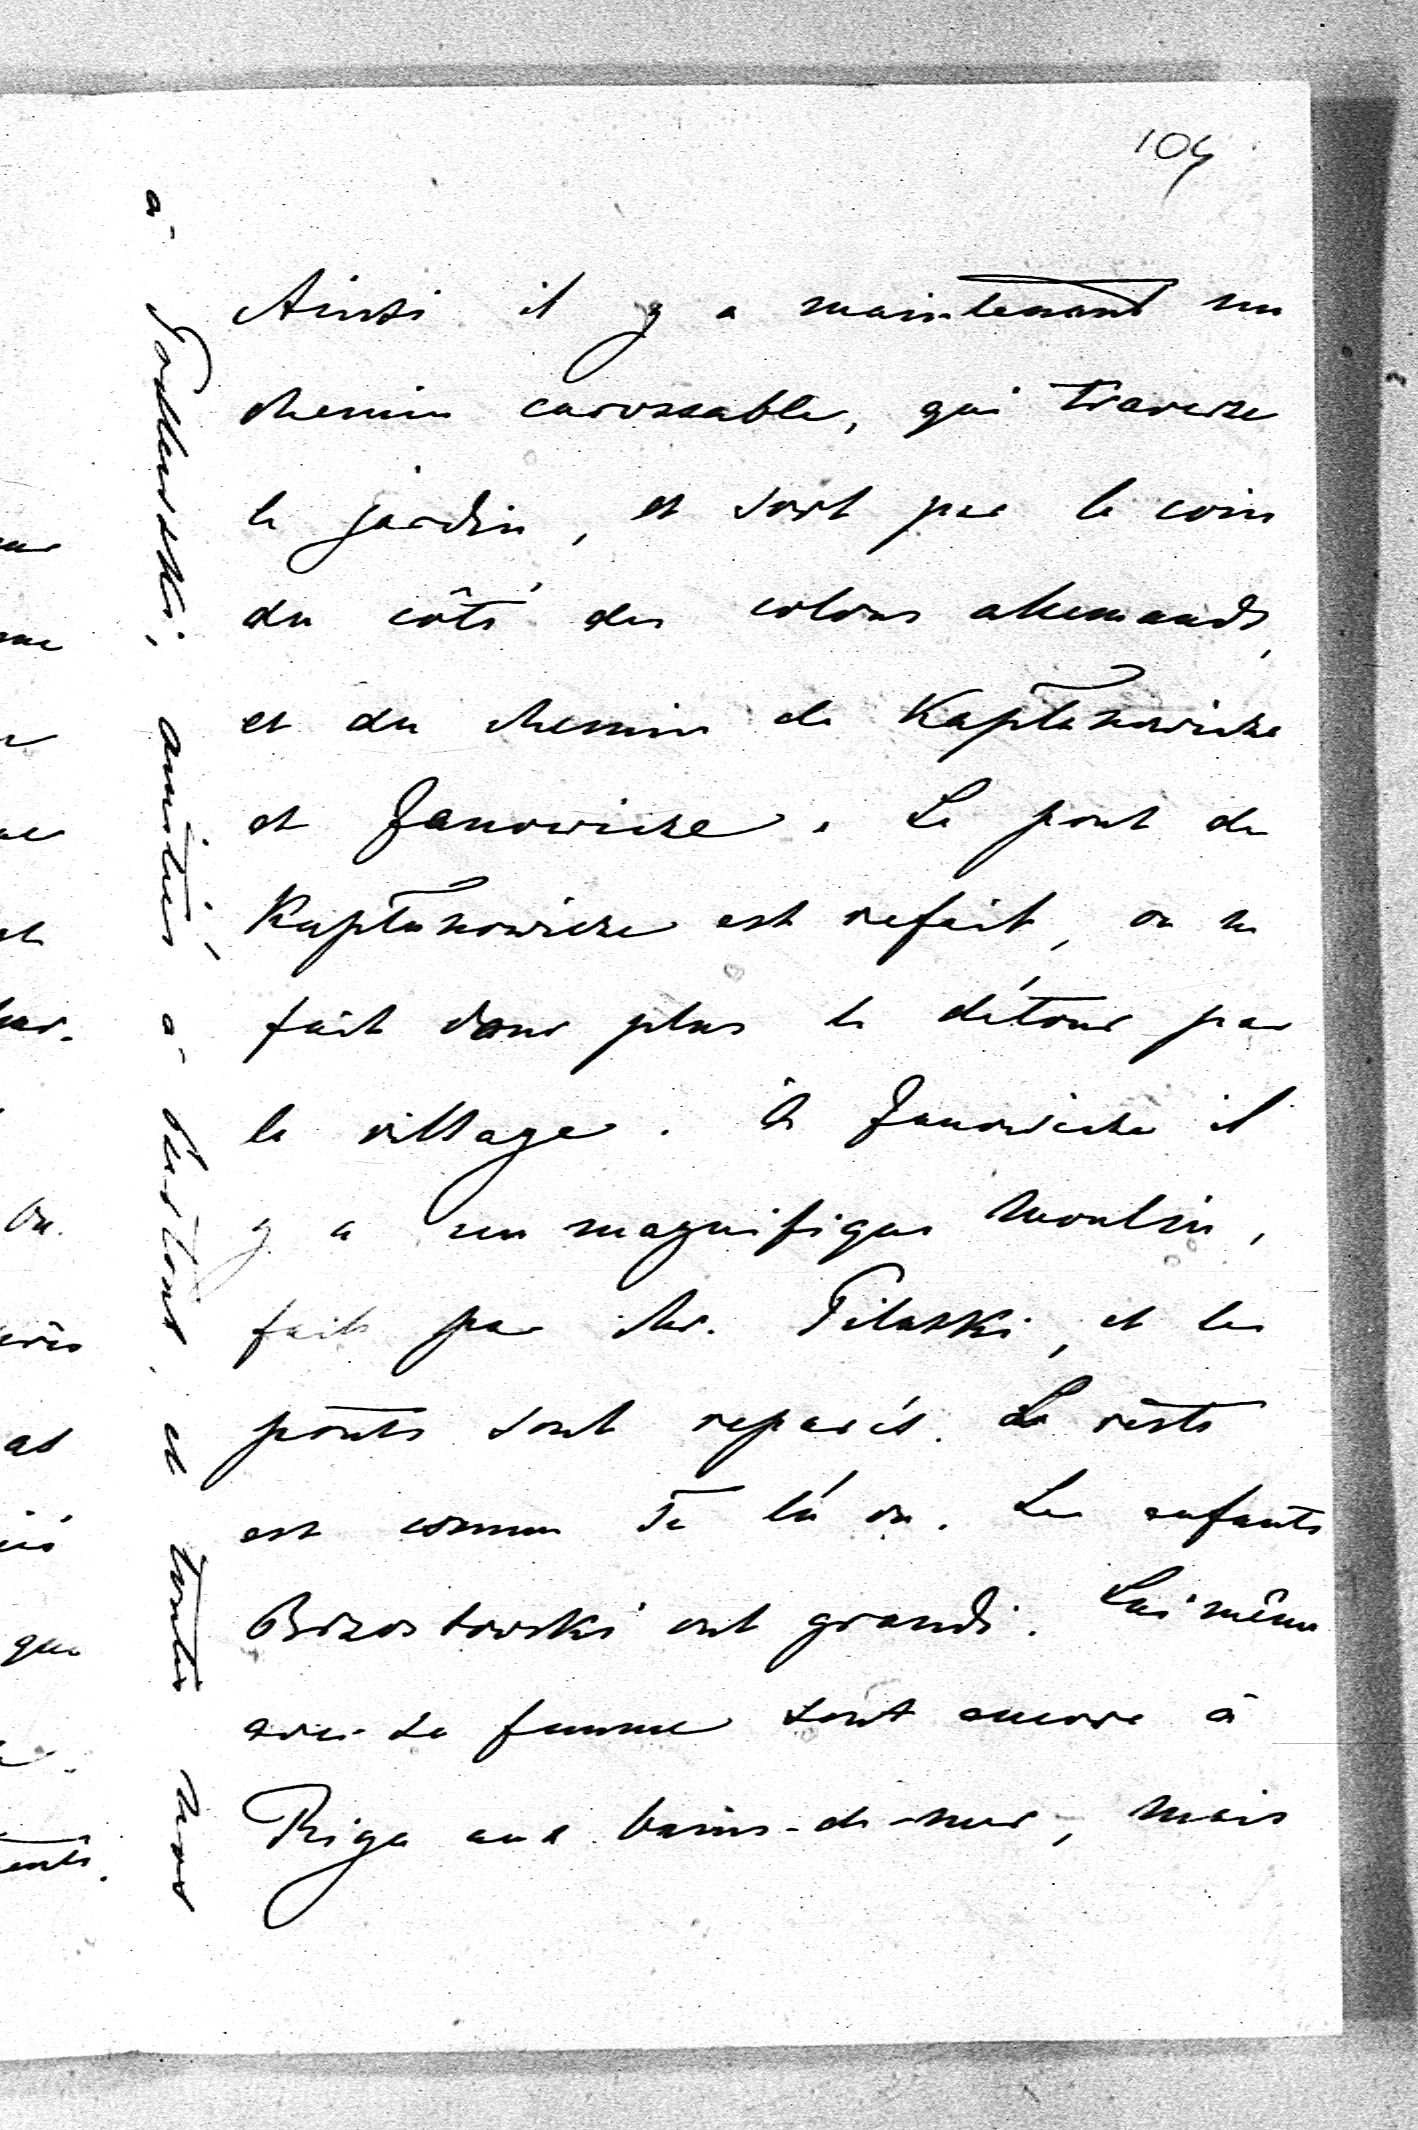 104
Ainsi il y a maintenant un
chemin carossable, qui traverse
le jardin, et sort par le coin
du côté des colons allemands,
et du chemin de Kaptunowicze
et Janowicze. Le pont de
Kaptunowicze est refait, on ne
fait donc plus le détour par
le village. À Janowicze il
y a un magnifique moulin,
fait par Mr. Pilaski, et les
ponts sont reparés. Le reste
est comme Tu l'a vu. Les enfants
Brzostowski ont grandi. Lui même
avec sa femme sont encore à
Riga aux bains-de-mer, mais
à amitiés à et toutes nos